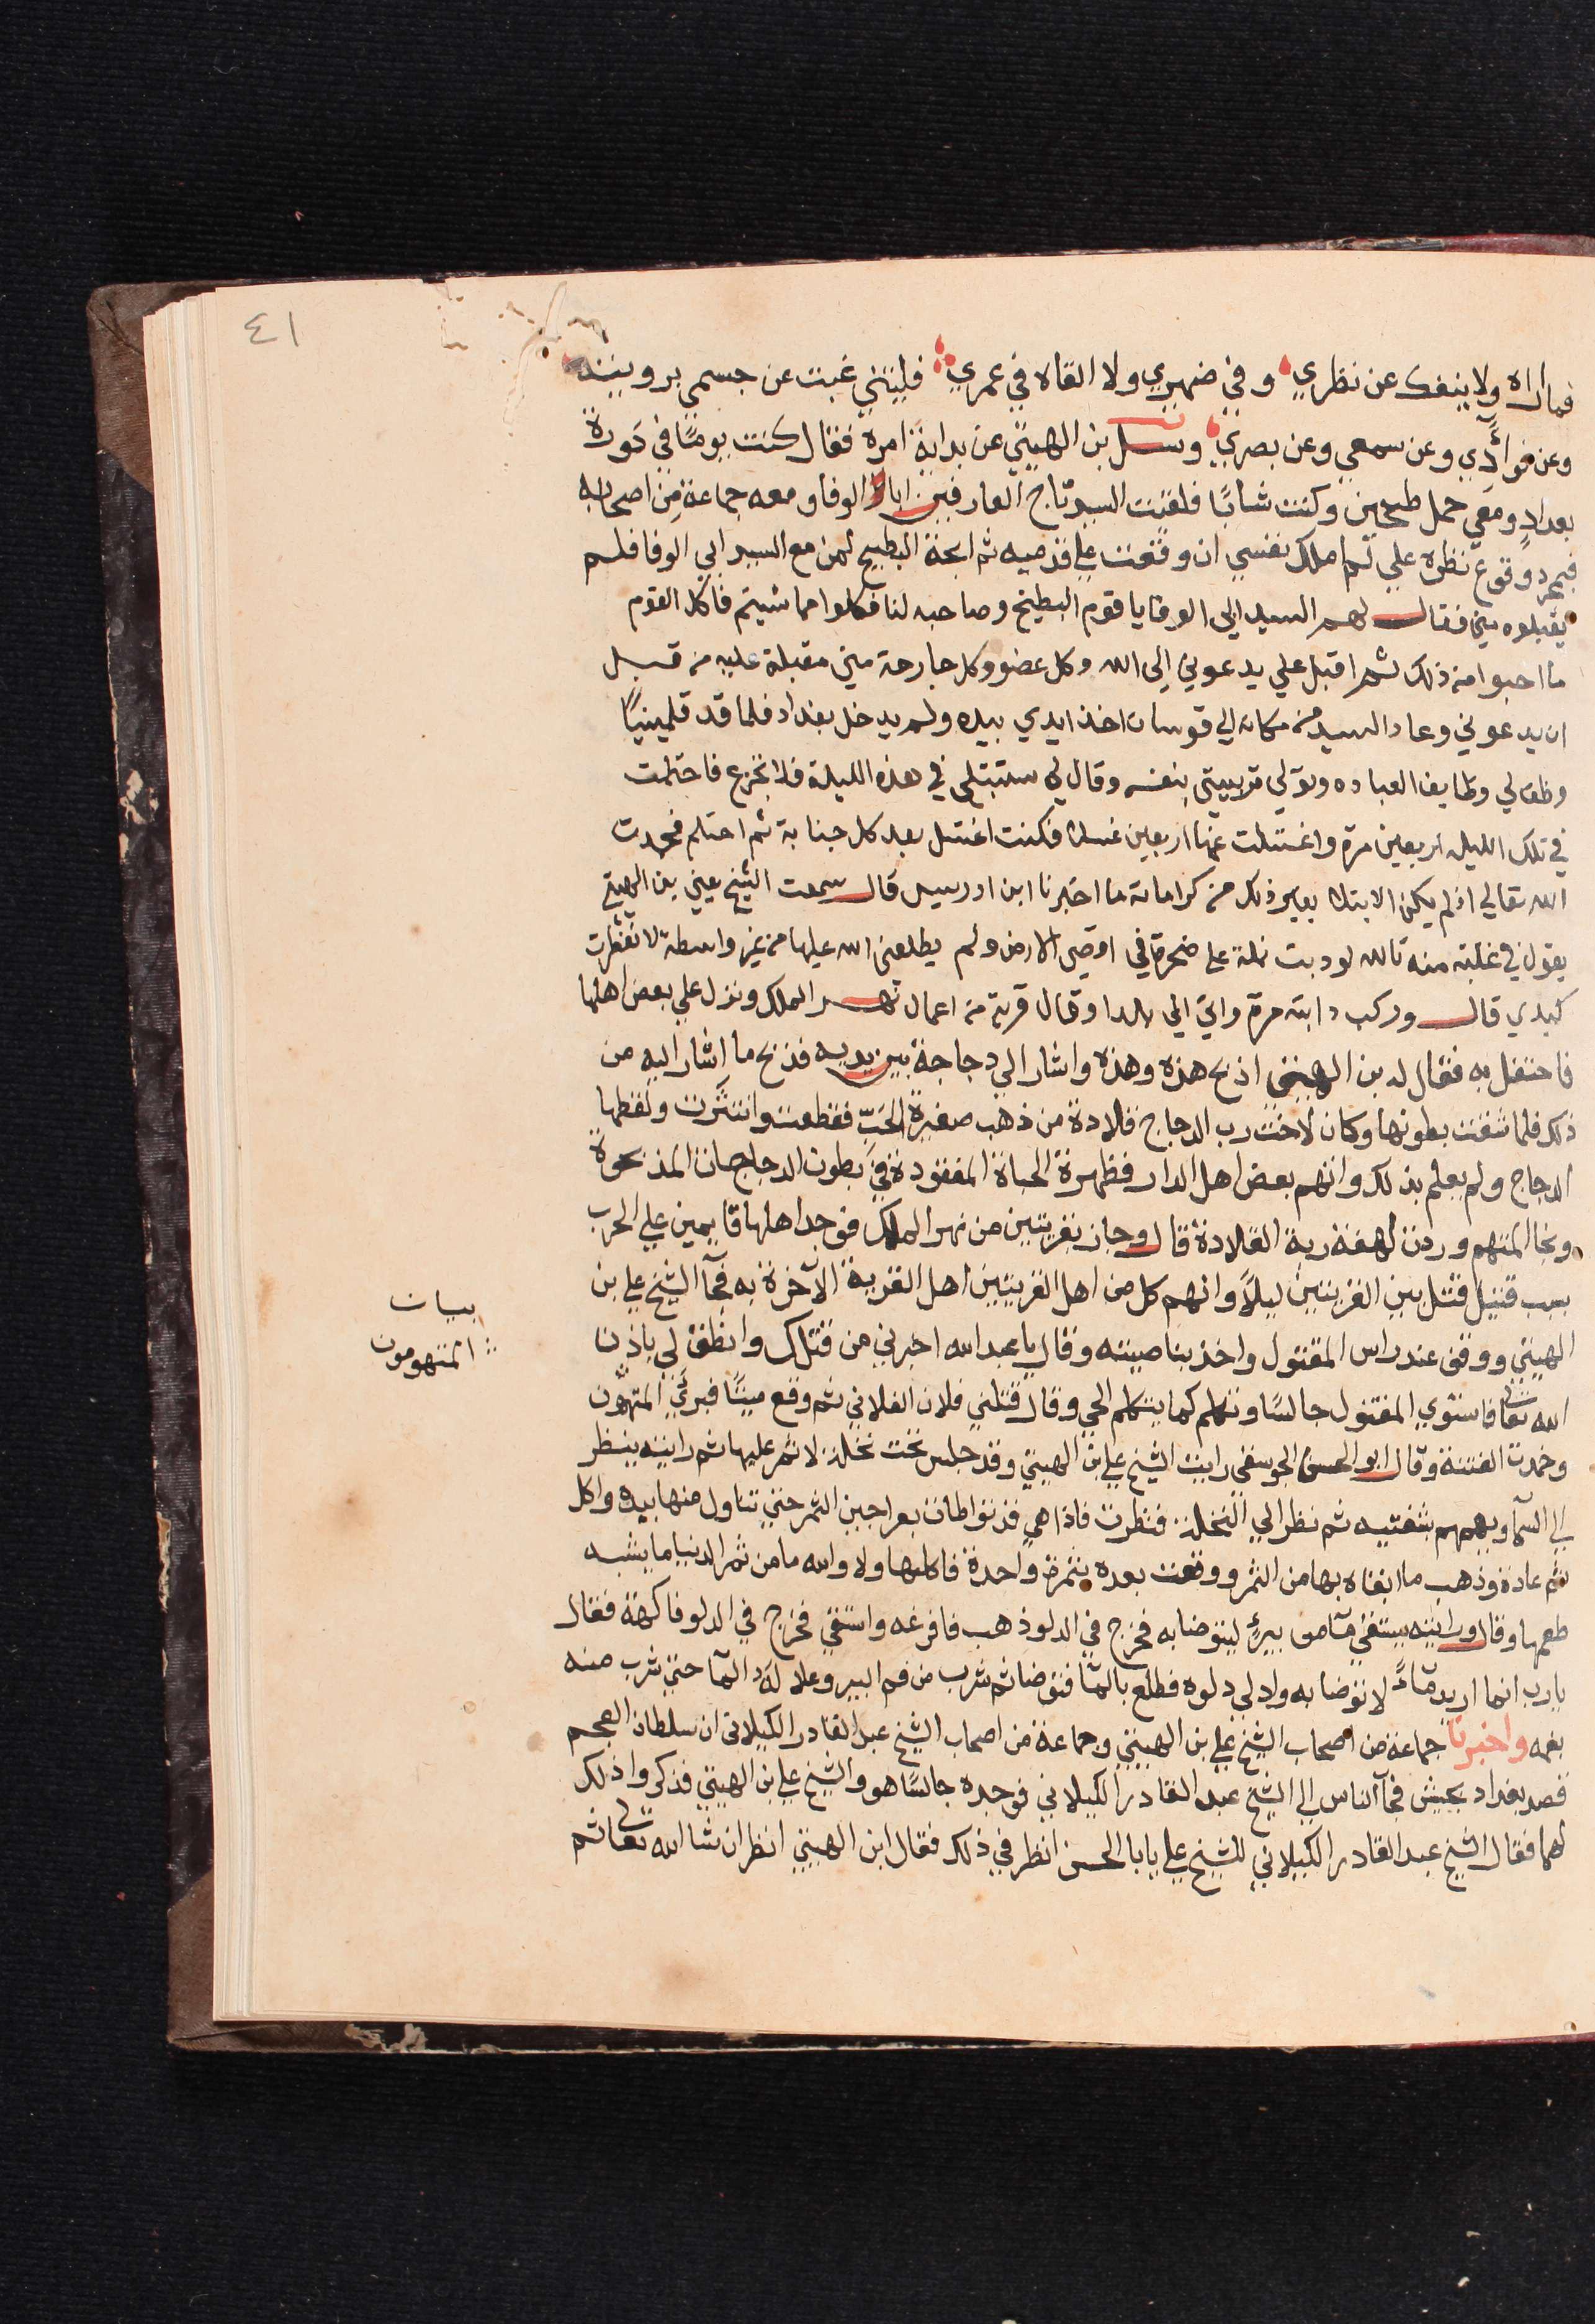 ٤١
فما اراه ولا ينفك عن نظري وفي ضميري ولا القاه في عمري فليتني غبت عن جسمي برويته
وعن فوادي وعن سمعي وعن بصري وسيل بن الهيتي عن بداية امره فقال كنت يومًا في دورة
بغداد ومعي حمل طيخين وكنت شابًا فلقيت السيد تاج العارفين ابا الوفا ومعه جماعة من اصحابه
فبمجرد وقوع نظره علي لم املك نفسي ان وقعت على قدميه ثم ابحة البطيخ لمن مع السيد ابي الوفا فلم
يقبلوه مني فقال لهم السيد ابى الوفا يا قوم البطيخ وصاحبه لنا فكلوا مما شيتم فاكل القوم
ما احبوا من ذلك ثم اقبل علي يدعوني الى الله وكل عضو وكل جارحة مني مقبلة عليه من قبل
ان يدعوني وعاد السيد من مكانه الي قوسان اخذ ايدي بيده ولم يدخل بغداد فلما قد قلمينيًا
وظف لي وظايف العباده وتولى تربيتي بنفسه وقال لي ستبتلى في هذه الليلة فلا تجزع فاحتلمت
في تلك الليله اربعين مرة واغتسلت عنها اربعين غسلا فكنت اغتسل بعد كل جنابة ثم احتلم فحمدت
الله تعالي اذ لم يكن الابتلا بغير ذلك من كراماته ما اخبرنا ابن ادريس قال سمعت الشيخ يعني بن الهيتي
يقول في غلبته منه تالله لو دبت نملة على صخرة في اقصى الارض ولم يطلعني الله عليها من غير واسطة لا تفطرت
كبدي قال وركب دابته مرة واتي الى بلدا وقال قرية من اعمال نهر الملك ونزل علي بعض اهلها
فاحتفل به فقال له بن الهيتي اذبح هذه وهذه واشار الي دجاجة بين يديه فذبح ما اشار اليه من
ذلك فلما شقت بطونها وكان لاخت رب الدجاج قلادة من ذهب صغيرة الحَبّ فقطعت وانتثرت ولقطها
الدجاج ولم يعلم بذلك واتهم بعض اهل الدار فظهرة الحياة المفقودة في بطون الدجاجات المذبحوة
ونجا المتهم وردت لهفة ربة القلادة قال وجاز بقريتين من نهر الملك فوجد اهلها قايمين علي الحرب
بسبب قتيل قتل بين القريتين ليلًا واتهم كل من اهل القريتين اهل القرية الآخرة به فجآ الشيخ علي بن
الهيتي ووقف عند راس المقتول واخذ بناصيته وقال يا عبد الله اخبرني من قتلك وانطق لي باذن
الله تعالى فاستوي المقتول جالسًا وتكلم كما يتكلم الحي وقال قتلني فلان الفلاني ثم وقع ميتًا فبرئي المتهون
وخمدت الفتنة وقال ابو الحسن الجوسقي رايت الشيخ علي بن الهيتي وقد جلس تحت نخلة لا ثمر عليها ثم رايته ينظر
الي السمآ ويهمهم بشفتيه ثم نظر الي النخلة فنظرت فاذا هي قد تواطات بعراجين الثمر حتي تناول منها بيده واكل
ثم عادة وذهب ما ابقاه بها من الثمر ووقعت بعده بثمرة واحدة فاكلها ولا والله ما من ثمر الدنيا ما يشبه
طعمها وقال ورايته يستقي مآ من بير ليتوضا به فخرج في الدلو ذهب فافرغه واستقي فخرج في الدلو فاكهة فقال
يا رب انما اريد مآءً لاتوضا به وادلي دلوه فطلع بالمآ فتوضا ثم شرب من فم البير وعلا له المآ حتي شرب منه
بفمه واخبرنا جماعة من اصحاب الشيخ علي بن الهيتي وجماعة من اصحاب الشيخ عبد القادر الكيلاني ان سلطان العجم
قصد بغداد بجيش فجآ الناس الي الشيخ عبد القادر الكيلاني فوجده جالسًا هو والشيخ علي بن الهيتي فذكروا ذلك
لهما فقال الشيخ عبد القادر الكيلاني للشيخ علي يابا الحسن انظر في ذلك فقال ابن الهيتي انظر ان شا الله تعالى ثم
بيات
المتهومون